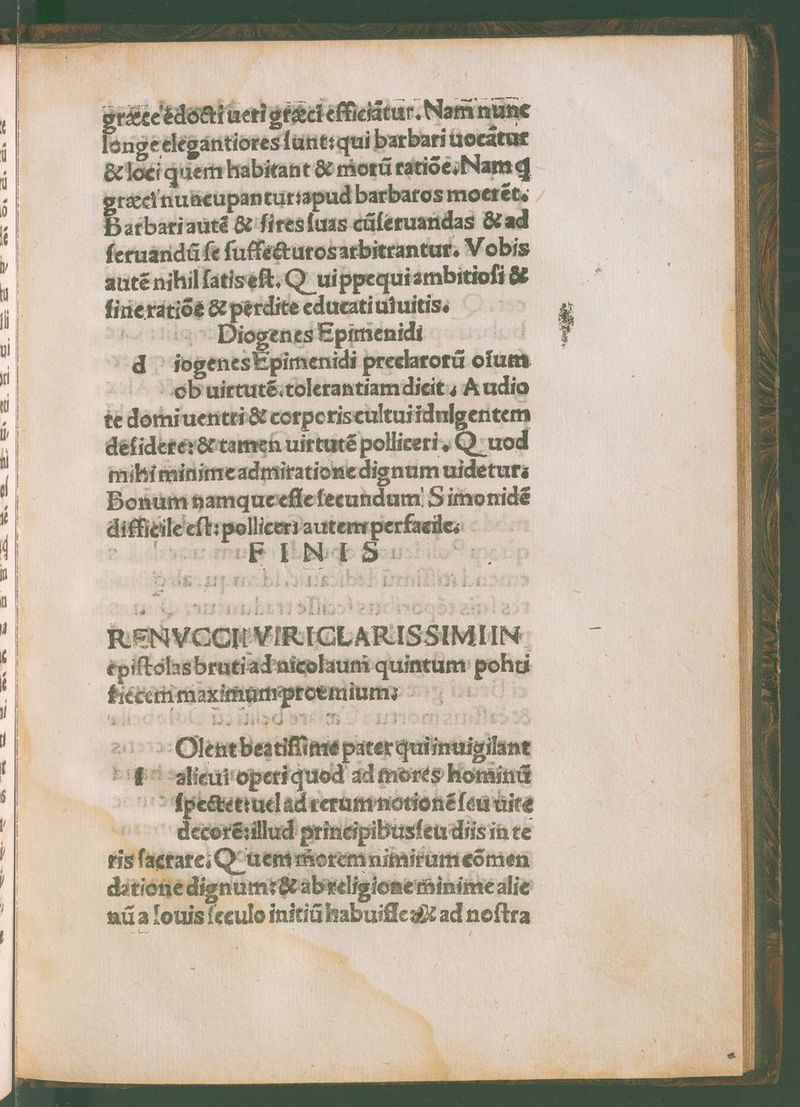 græce édocti ueri græci efficiātur. Nam nunc
longe elegantiores sunt: qui barbari uocātur
& loci quem habitant & morū ratiōe; Nam q
græci nuncupantur: apud barbaros mocrēt.
Barbari autē & fires suas cūseruandas & ad
seruandū se suffecturos arbitrantur. Vobis
autē nihil satis est. Q uippe qui ambitiosi &
sine ratiōe & perdite educati uiuitis.
Diogenes Epimenidi
d iogenes Epimenidi preclarorū oium
ob uirtutē. tolerantiam dicit; Audio
te domi uentri & corporis cultui idulgentem
desidere: & tamen uirtutē polliceri. Q uod
mihi minime admiratione dignum uidetur;
Bonum namque esse fecundum Simonidē
difficile est: polliceri autem perfacile;
FINIS
RENVCCII VIRI CLARISSIMI IN
epistolas bruti ad nicolaum quintum pohti
ficem maximum proemium;
Olent beatissime pater qui inuigilant
s alicui operi quod ad mores hominū
spectet: uel ad rerum notionē seu uite
decorē: illud principibus seu diis in te
ris sacrare; Q uem morem nimirum cōmen
datione dignum: & ab religione minime alie
nū a Iouis seculo initiū habuisse: & ad nostra